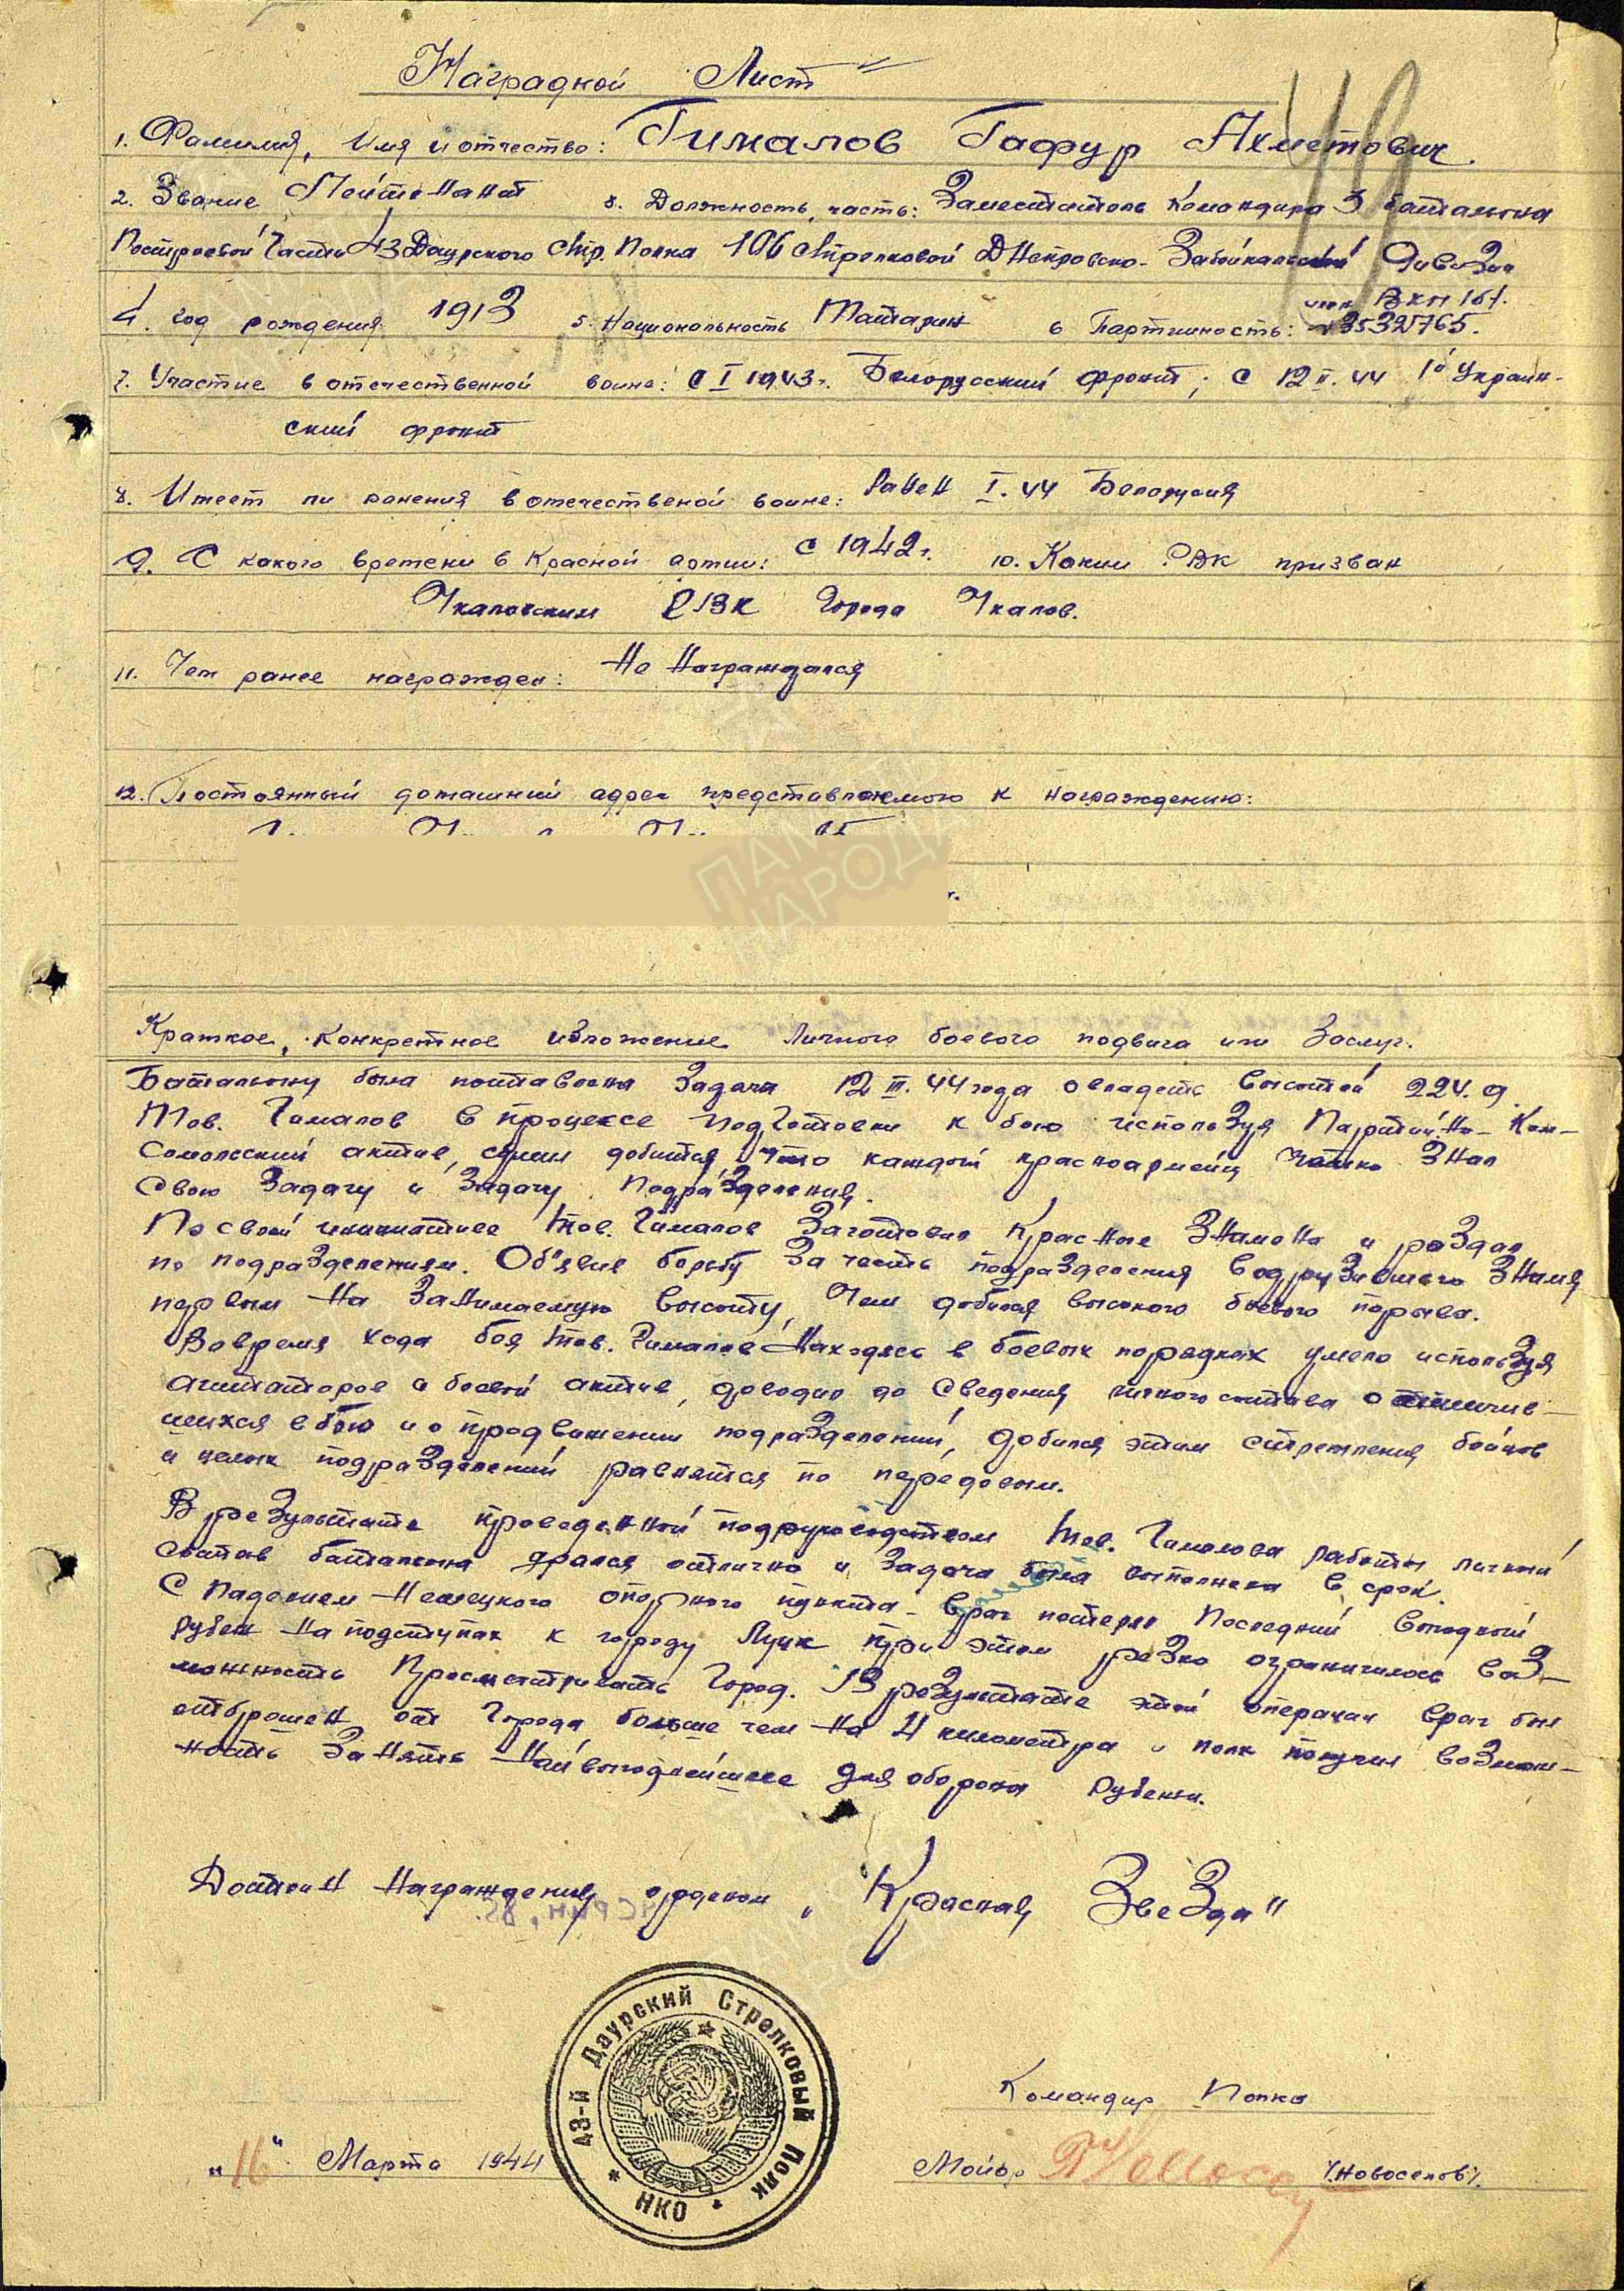 Наградной Лист
1. Фамилия, Имя и отчество: Гималов Гафур Ахметович.
2. Звание Лейтенант 3. Должность, часть: Заместитель Командира 3 батальона
Пострроевой Части 43 Даурского стр. Полка 106 Стрелковой Днепровско-Забайкальской Дивизии
член ВКП(б).
4. год рождения 1913 5. Национальность Татарин 6 Партийность: 3532765.
7. Участие в отечественной воине: с I 1943 г. Белорусский фронт; с 12 II. 44 1й Украин-
ский фронт
8. Имеет ли ранения в отечественой воине: Ранен I. 44 Белоруссия
9. С какого времени в Красной армии: с 1942 г. 10. Каким РВК призван
Чкаловским РВК Города Чкалов.
11. Чем ранее награжден: Не Награждался
12. Постоянный домашний адрес представляемого к награждению:
Краткое, конкретное изложение личного боевого подвига или заслуг.
Батальону была поставлена задача 12 III. 44 года овладеть высотой 224.9.
Тов. Гималов в процессе подготовки к бою используя Партийно-Ком-
сомолеский актив, сумел добится что каждый красноармеец четко знал
свою задачу и задачу подразделения.
По своей инициативе тов. Гималов заготовил Красные Знамена и роздал
по подразделениям. Об'явив борьбу за честь подразделения водрузившего Знамя
первым на занимаемую высоту, чем добился высокого боевого порыва.
Вовремя хода боя тов. Гималов находясь в боевых порядках умело используя
агитаторов и боевой актив, доводил до сведения личного состава о отличив-
шихся в бою и о продвижении подразделений, добился этим стремления бойцов
и целых подразделений равнятся по передовым.
В результате проведенной подруководством тов. Гималова работы личный
состав батальона дрался отлично и задача была выполнена в срок.
С падением Немецкого опорного пункта - враг потерял Последний выгодный
рубеж на подступах к городу Луцк при этом резко ограничилось воз-
можность Просматривать Город. В результате этой операции враг был
отброшен от Города больше чем на 4 километра и полк получил возмож-
ность занять наивыгоднейшее для обороны рубежи.
Достоин награждения орденом „Красная Звезда"
43-й Даурский Стрелковый Полк
НКО
Командир Полка
„16" Марта 1944
Майор /Новоселов/.
ПАМЯТЬ
НАРОДА